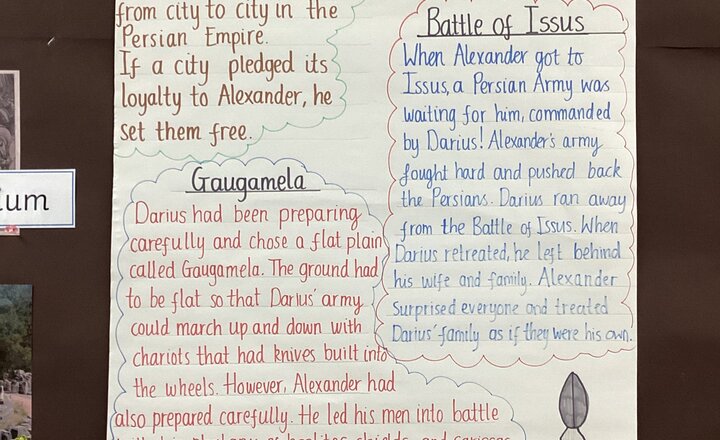 from city to city in the
Persian Empire.
If a city pledged its
loyalty to Alexander, he
set them free.
Battle of Issus
When Alexander got to
Issus, a Persian Army was
waiting for him, commanded
by Darius! Alexander's army
fought hard and pushed back
the Persians. Darius ran away
from the Battle of Issus. When
Darius retreated, he left behind
his wife and family. Alexander
surprised everyone and treated
Darius' family as if they were his own.
Gaugamela
Darius had been preparing
carefully and chose a flat plain
called Gaugamela. The ground had
to be flat so that Darius' army
could march up and down with
chariots that had knives built into
the wheels. However, Alexander had
also prepared carefully. He led his men into battle